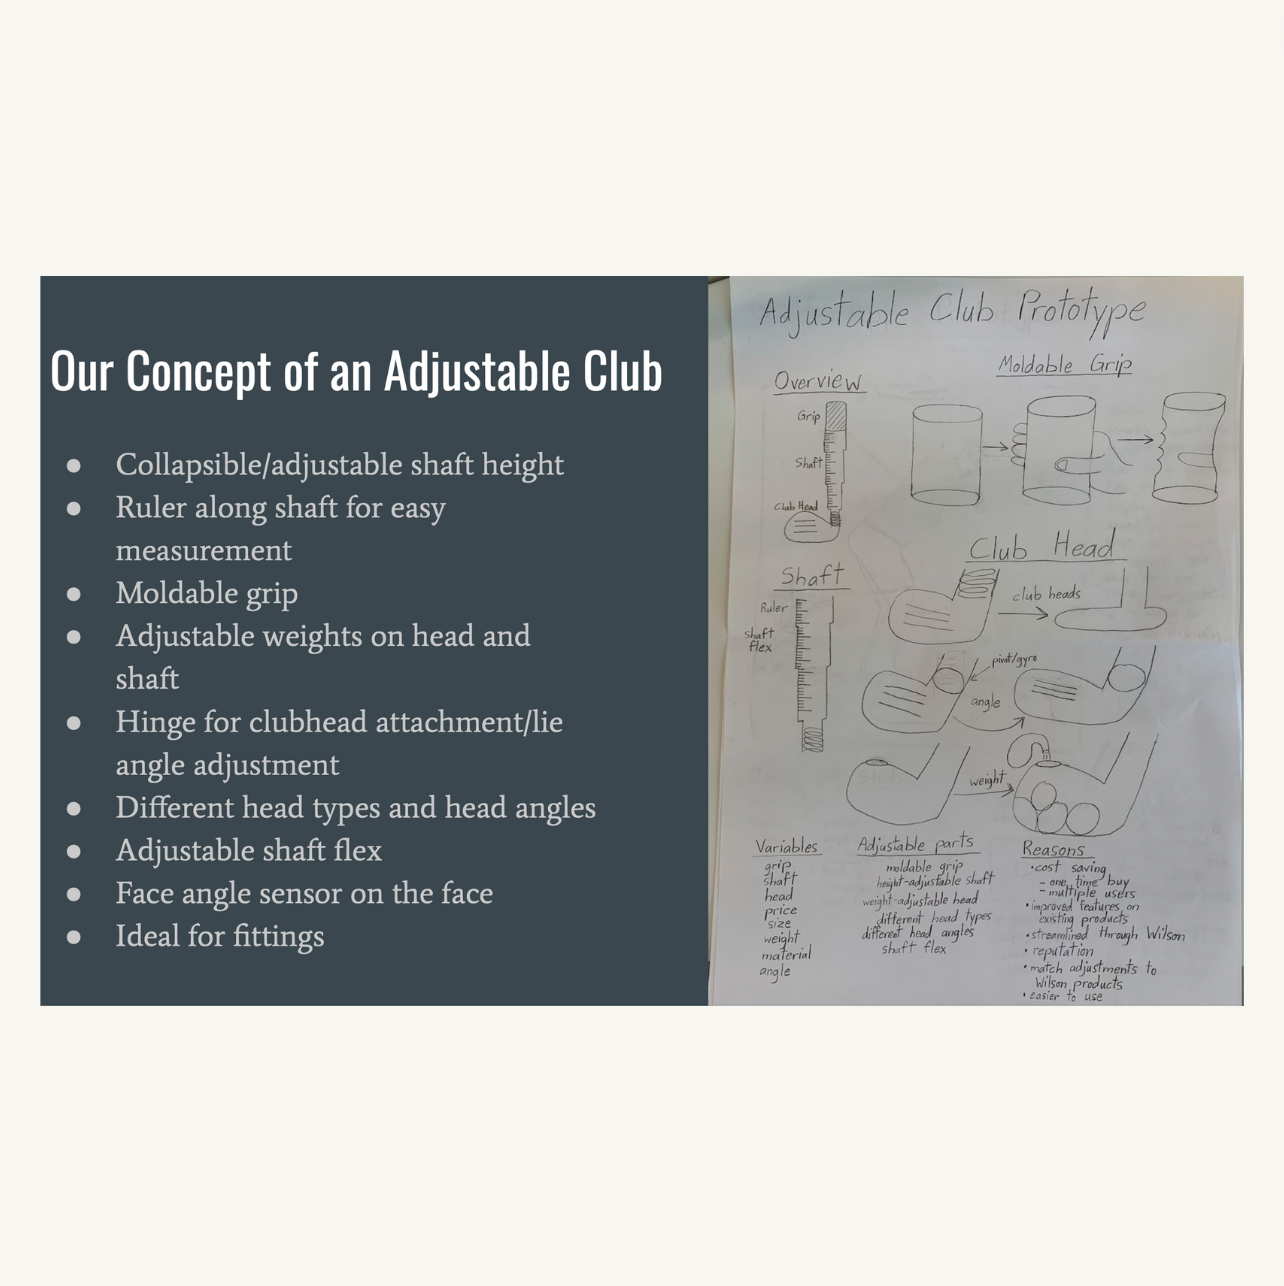 Our Concept of an Adjustable Club
● Collapsible/adjustable shaft height
● Ruler along shaft for easy
measurement
● Moldable grip
● Adjustable weights on head and
shaft
● Hinge for clubhead attachment/lie
angle adjustment
● Different head types and head angles
● Adjustable shaft flex
● Face angle sensor on the face
● Ideal for fittings
Adjustable Club Prototype
Overview
Grip
Shaft
Club Head
Moldable Grip
Shaft
Ruler
shaft
flex
Club Head
club heads
pivot/gyro
angle
weight
Variables
grip
shaft
head
price
size
weight
material
angle
Adjustable parts
moldable grip
height-adjustable shaft
weight-adjustable head
different head types
different head angles
shaft flex
Reasons
• cost saving
- one time buy
- multiple users
• improved features on
existing products
• streamlined through Wilson
• reputation
• match adjustments to
Wilson products
• easier to use